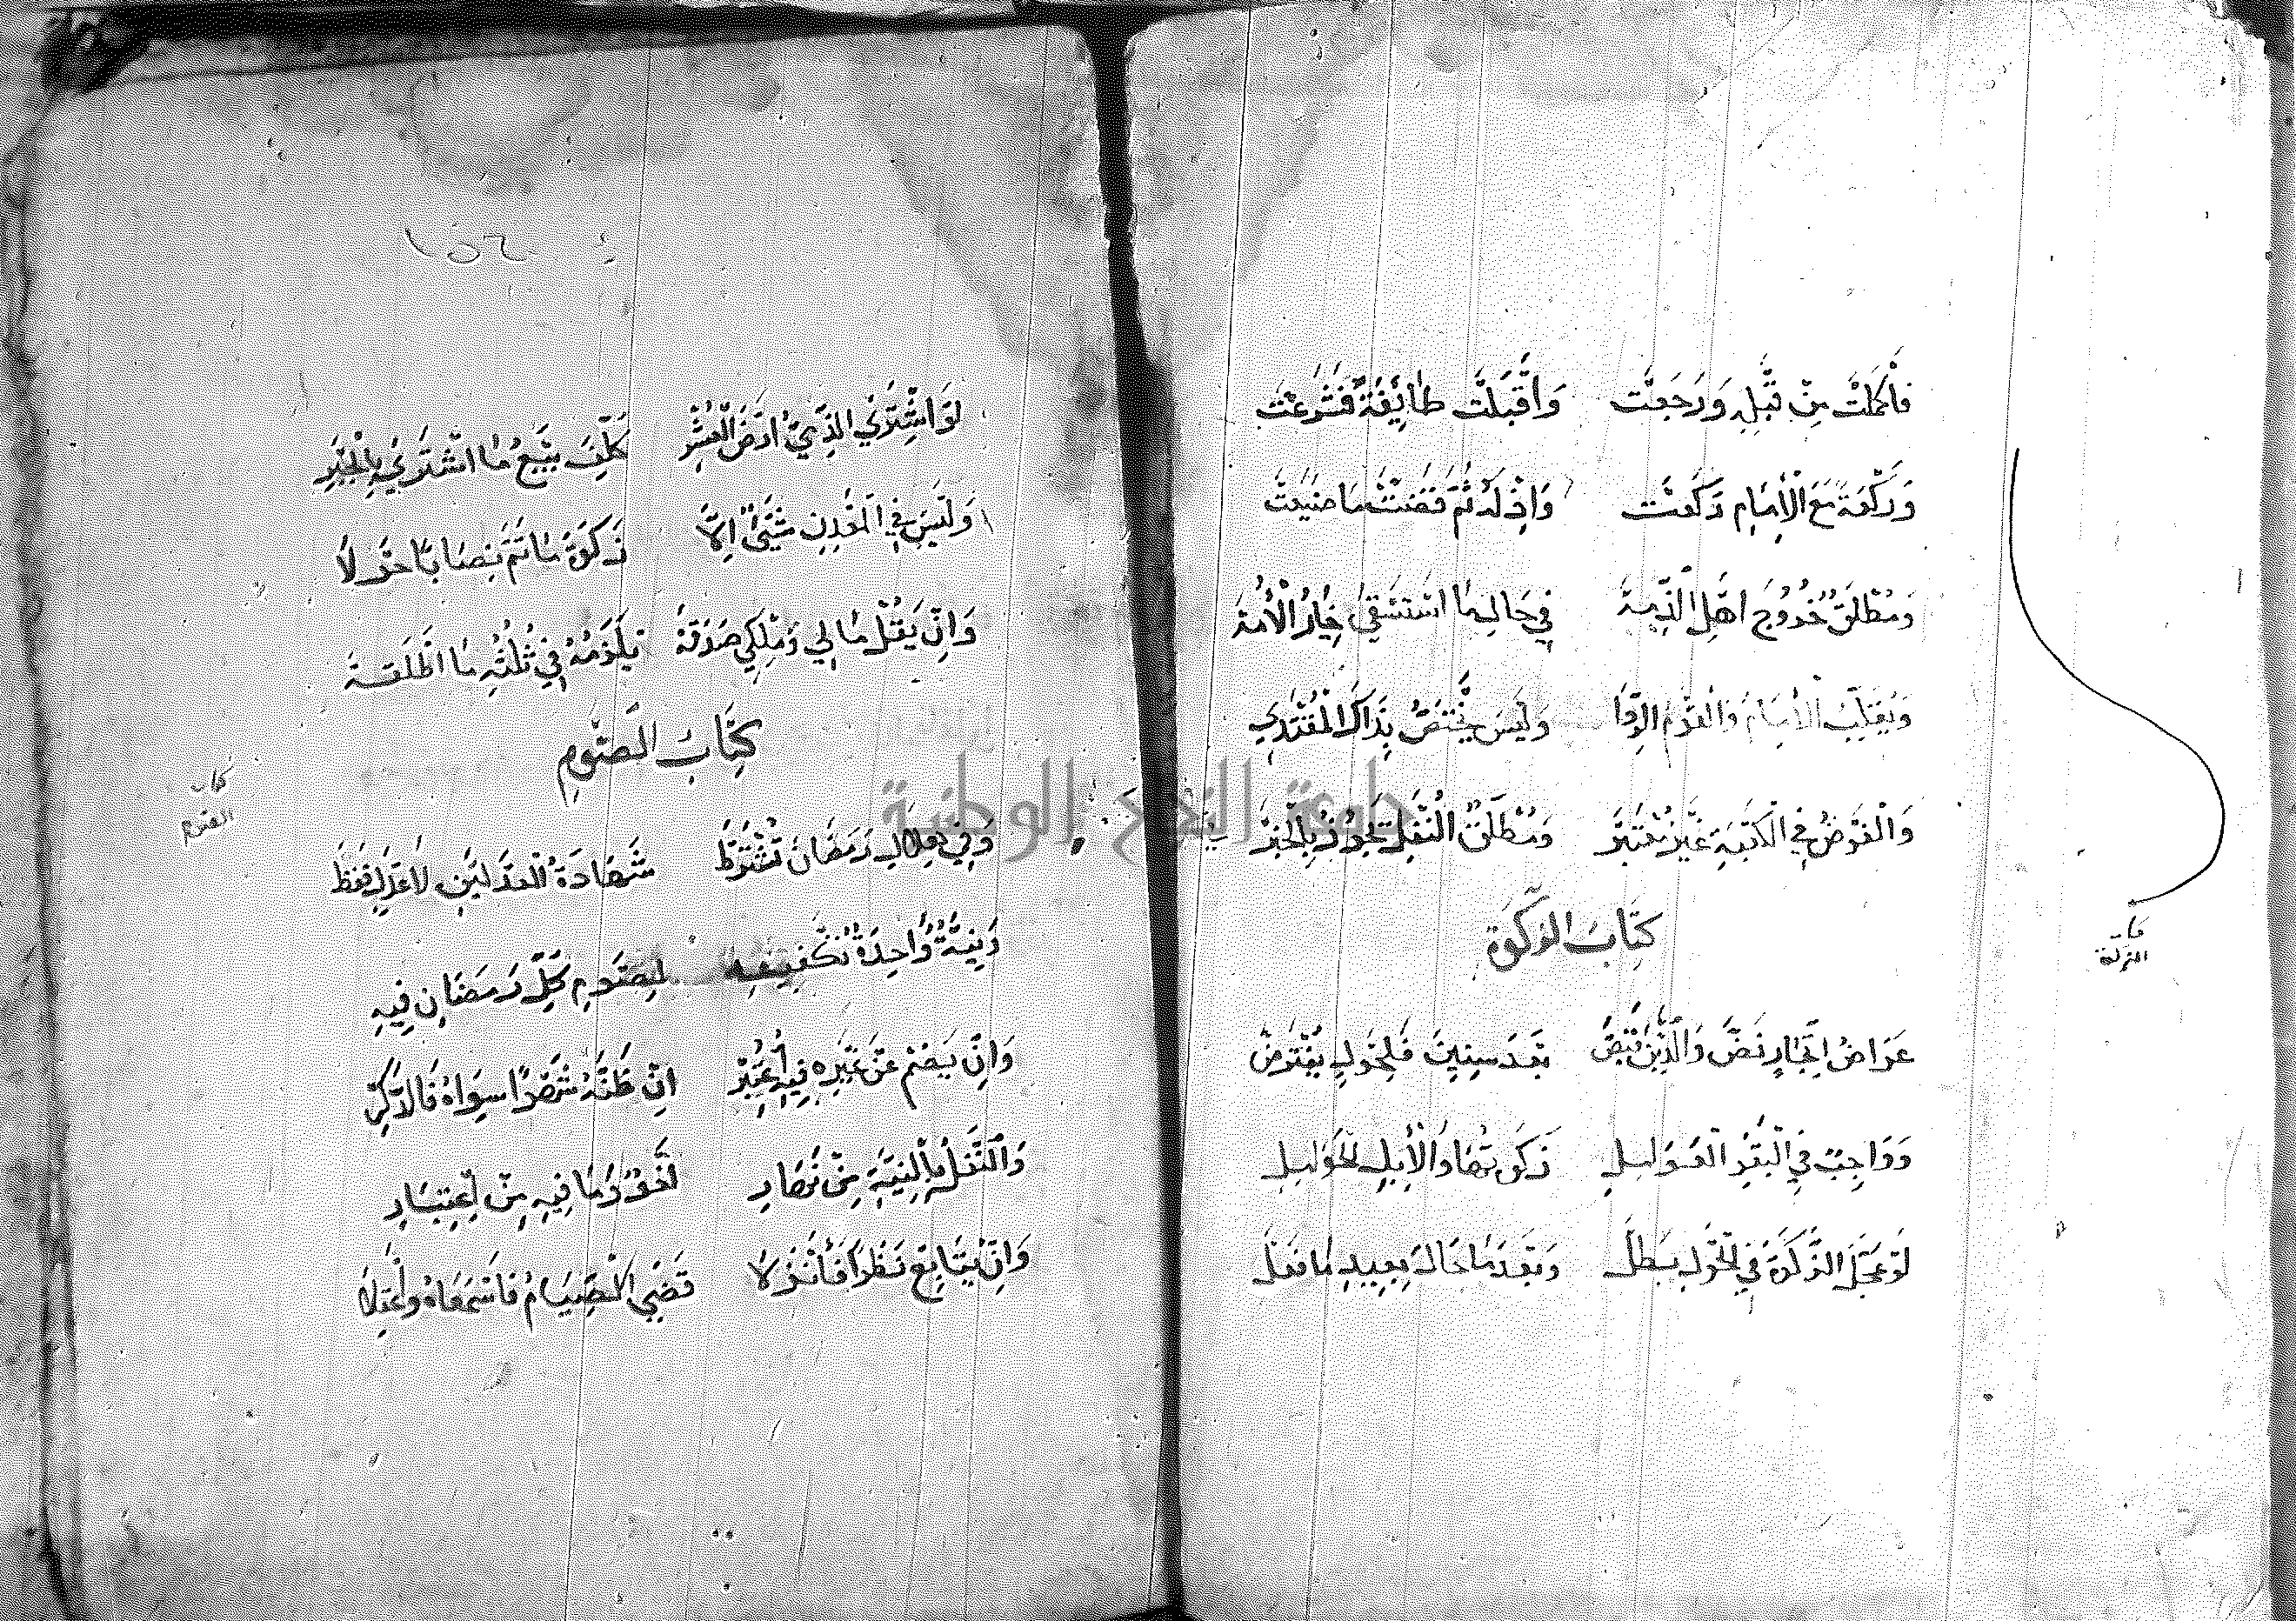 فَأَكْمَلَتْ مِنْ قَبْلِهِ وَرَجَعَتْ وَأَقْبَلَتْ طَائِفَةٌ فَشَرَعَتْ
وَرَكْعَةً مَعَ الْإِمَامِ رَكَعَتْ وَإِذْ لَهُ تَمَّ قَضَتْ مَا ضَيَّعَتْ
وَمُطْلَقٌ خُرُوجُ أَهْلِ الذِّمَّةِ فِي حَالِ مَا اسْتَسْقَى خِيَارُ الْأُمَّةِ
وَيَقْلِبُ الْإِمَامُ وَالْقَوْمُ الرِّدَا وَلَيْسَ يَخْتَصُّ بِذَاكَ الْمُقْتَدِي
وَالْفَرْضُ فِي الْكَعْبَةِ غَيْرُ مُعْتَبَرْ وَمُطْلَقُ النَّفْلِ يَجُوزُ بِالْخَبَرْ
كِتَابُ الزَّكٰوةِ
عَرَاضُ اتِّجَارٍ نَضَّ وَالدَّيْنُ قُبِضْ بَعْدَ سِنِينَ فَلِحَوْلٍ يُفْتَرَضْ
وَوَاجِبٌ فِي الْبَقَرِ الْعَوَامِلِ زَكٰوتُهَا وَالْإِبِلِ الْحَوَامِلِ
لَوْ عَجَّلَ الزَّكٰوةَ فِي الْحَوْلِ بَطَلْ وَبَعْدَمَا حَالَ يُعِيدُ مَا فَعَلْ
كتاب
الزكاة
١٥٦
لَوِ اشْتَرَى الذِّمِّيُّ أَرْضَ الْعُشْرِ كُلِّفَ بَيْعُ مَا اشْتَرَى بِالْجَبْرِ
وَلَيْسَ فِي الْمَعْدِنِ شَيْءٌ إِلَّا زَكٰوةُ مَا تَمَّ نِصَابًا حَوْلَا
وَإِنْ يَقُلْ مَالِي وَمِلْكِي صَدَقَةْ يَلْزَمُهُ فِي ثُلْثِهِ مَا أَطْلَقَهْ
كِتَابُ الصَّوْمِ
كتاب
الصوم
وَفِي هِلَالِ رَمَضَانَ تُشْتَرَطْ شَهَادَةُ الْعَدْلَيْنِ لَا عَدْلٍ فَقَطْ
وَنِيَّةٌ وَاحِدَةٌ تَكْفِيهِ لِصَوْمِ كُلِّ رَمَضَانَ فِيهِ
وَإِنْ يَصُمْ عَنْ غَيْرِهِ فِيهِ اعْتُبِرْ إِنْ ظَنَّهُ شَهْرًا سِوَاهُ فَادَّكِرْ
وَالنَّفْلُ بِالنِّيَّةِ مِنْ نَهَارِ لَغْوٌ وَمَا فِيهِ مِنْ اعْتِبَارِ
وَإِنْ يُتَابِعْ نَظَرًا فَأَنْزَلَا قَضَى الصِّيَامَ فَاسْمَعَاهُ وَاعْقِلَا
جامعة النجاح الوطنية